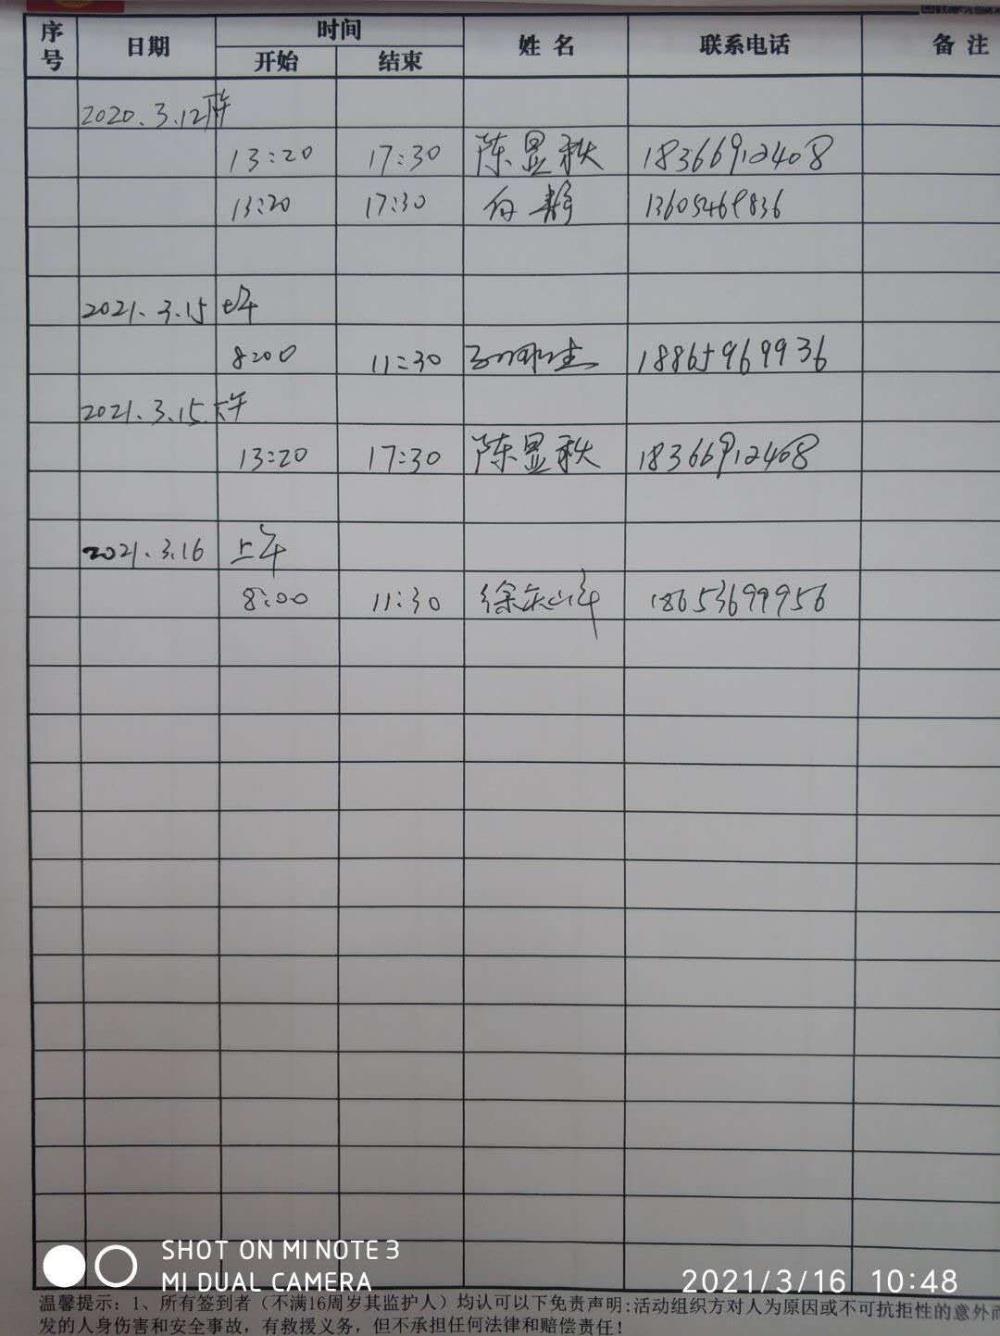 序号 日期 时间 姓名 联系电话 备注
开始 结束
2020.3.12下午
13:20 17:30 陈显秋 18366912408
13:20 17:30 白静 13605469836
2021.3.15 上午
8:00 11:30 18865969936
2021.3.15.下午
13:20 17:30 陈显秋 18366912408
2021.3.16 上午
8:00 11:30 徐 18653699956
SHOT ON MI NOTE 3
MI DUAL CAMERA
2021/3/16 10:48
温馨提示：1、所有签到者（不满16周岁其监护人）均认可以下免责声明:活动组织方对人为原因或不可抗拒性的意外而
发的人身伤害和安全事故，有救援义务，但不承担任何法律和赔偿责任！